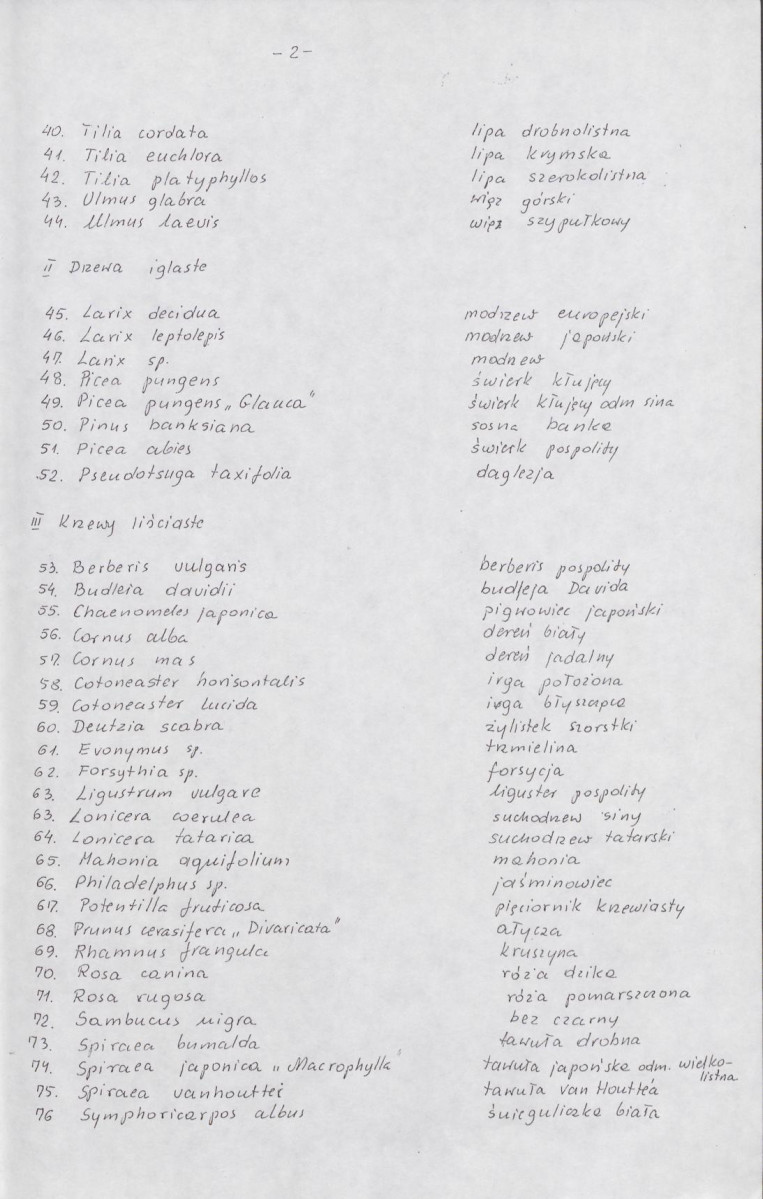 - 2 -
40. Tilia cordata lipa drobnolistna
41. Tilia euchlora lipa krymska
42. Tilia platyphyllos lipa szerokolistna
43. Ulmus glabra wiąz górski
44. Ulmus laevis wiąz szypułkowy
II Drzewa iglaste
45. Larix decidua modrzew europejski
46. Larix leptolepis modrzew japoński
47. Larix sp. modrzew
48. Picea pungens świerk kłujący
49. Picea pungens „Glauca" świerk kłujący odm sina
50. Pinus banksiana sosna banksa
51. Picea abies świerk pospolity
52. Pseudotsuga taxifolia daglezja
III Krzewy liściaste
53. Berberis vulgaris berberis pospolity
54. Budleia davidii budleja Davida
55. Chaenomeles japonica pigwowiec japoński
56. Cornus alba dereń biały
57. Cornus mas dereń jadalny
58. Cotoneaster horisontalis irga położona
59. Cotoneaster lucida irga błyszcząca
60. Deutzia scabra żylistek szorstki
61. Evonymus sp. trzmielina
62. Forsythia sp. forsycja
63. Ligustrum vulgare liguster pospolity
63. Lonicera coerulea suchodrzew siny
64. Lonicera tatarica suchodrzew tatarski
65. Mahonia aquifolium mahonia
66. Philadelphus sp. jaśminowiec
67. Potentilla fruticosa pięciornik krzewiasty
68. Prunus cerasifera „Divaricata" ałycza
69. Rhamnus frangula kruszyna
70. Rosa canina róża dzika
71. Rosa rugosa róża pomarszczona
72. Sambucus nigra bez czarny
73. Spiraea bumalda tawuła drobna
74. Spiraea japonica „Macrophylla" tawuła japońska odm. wielko-
listna
75. Spiraea vanhouttei tawuła Van Houttea
76 Symphoricarpos albus śnieguliczka biała